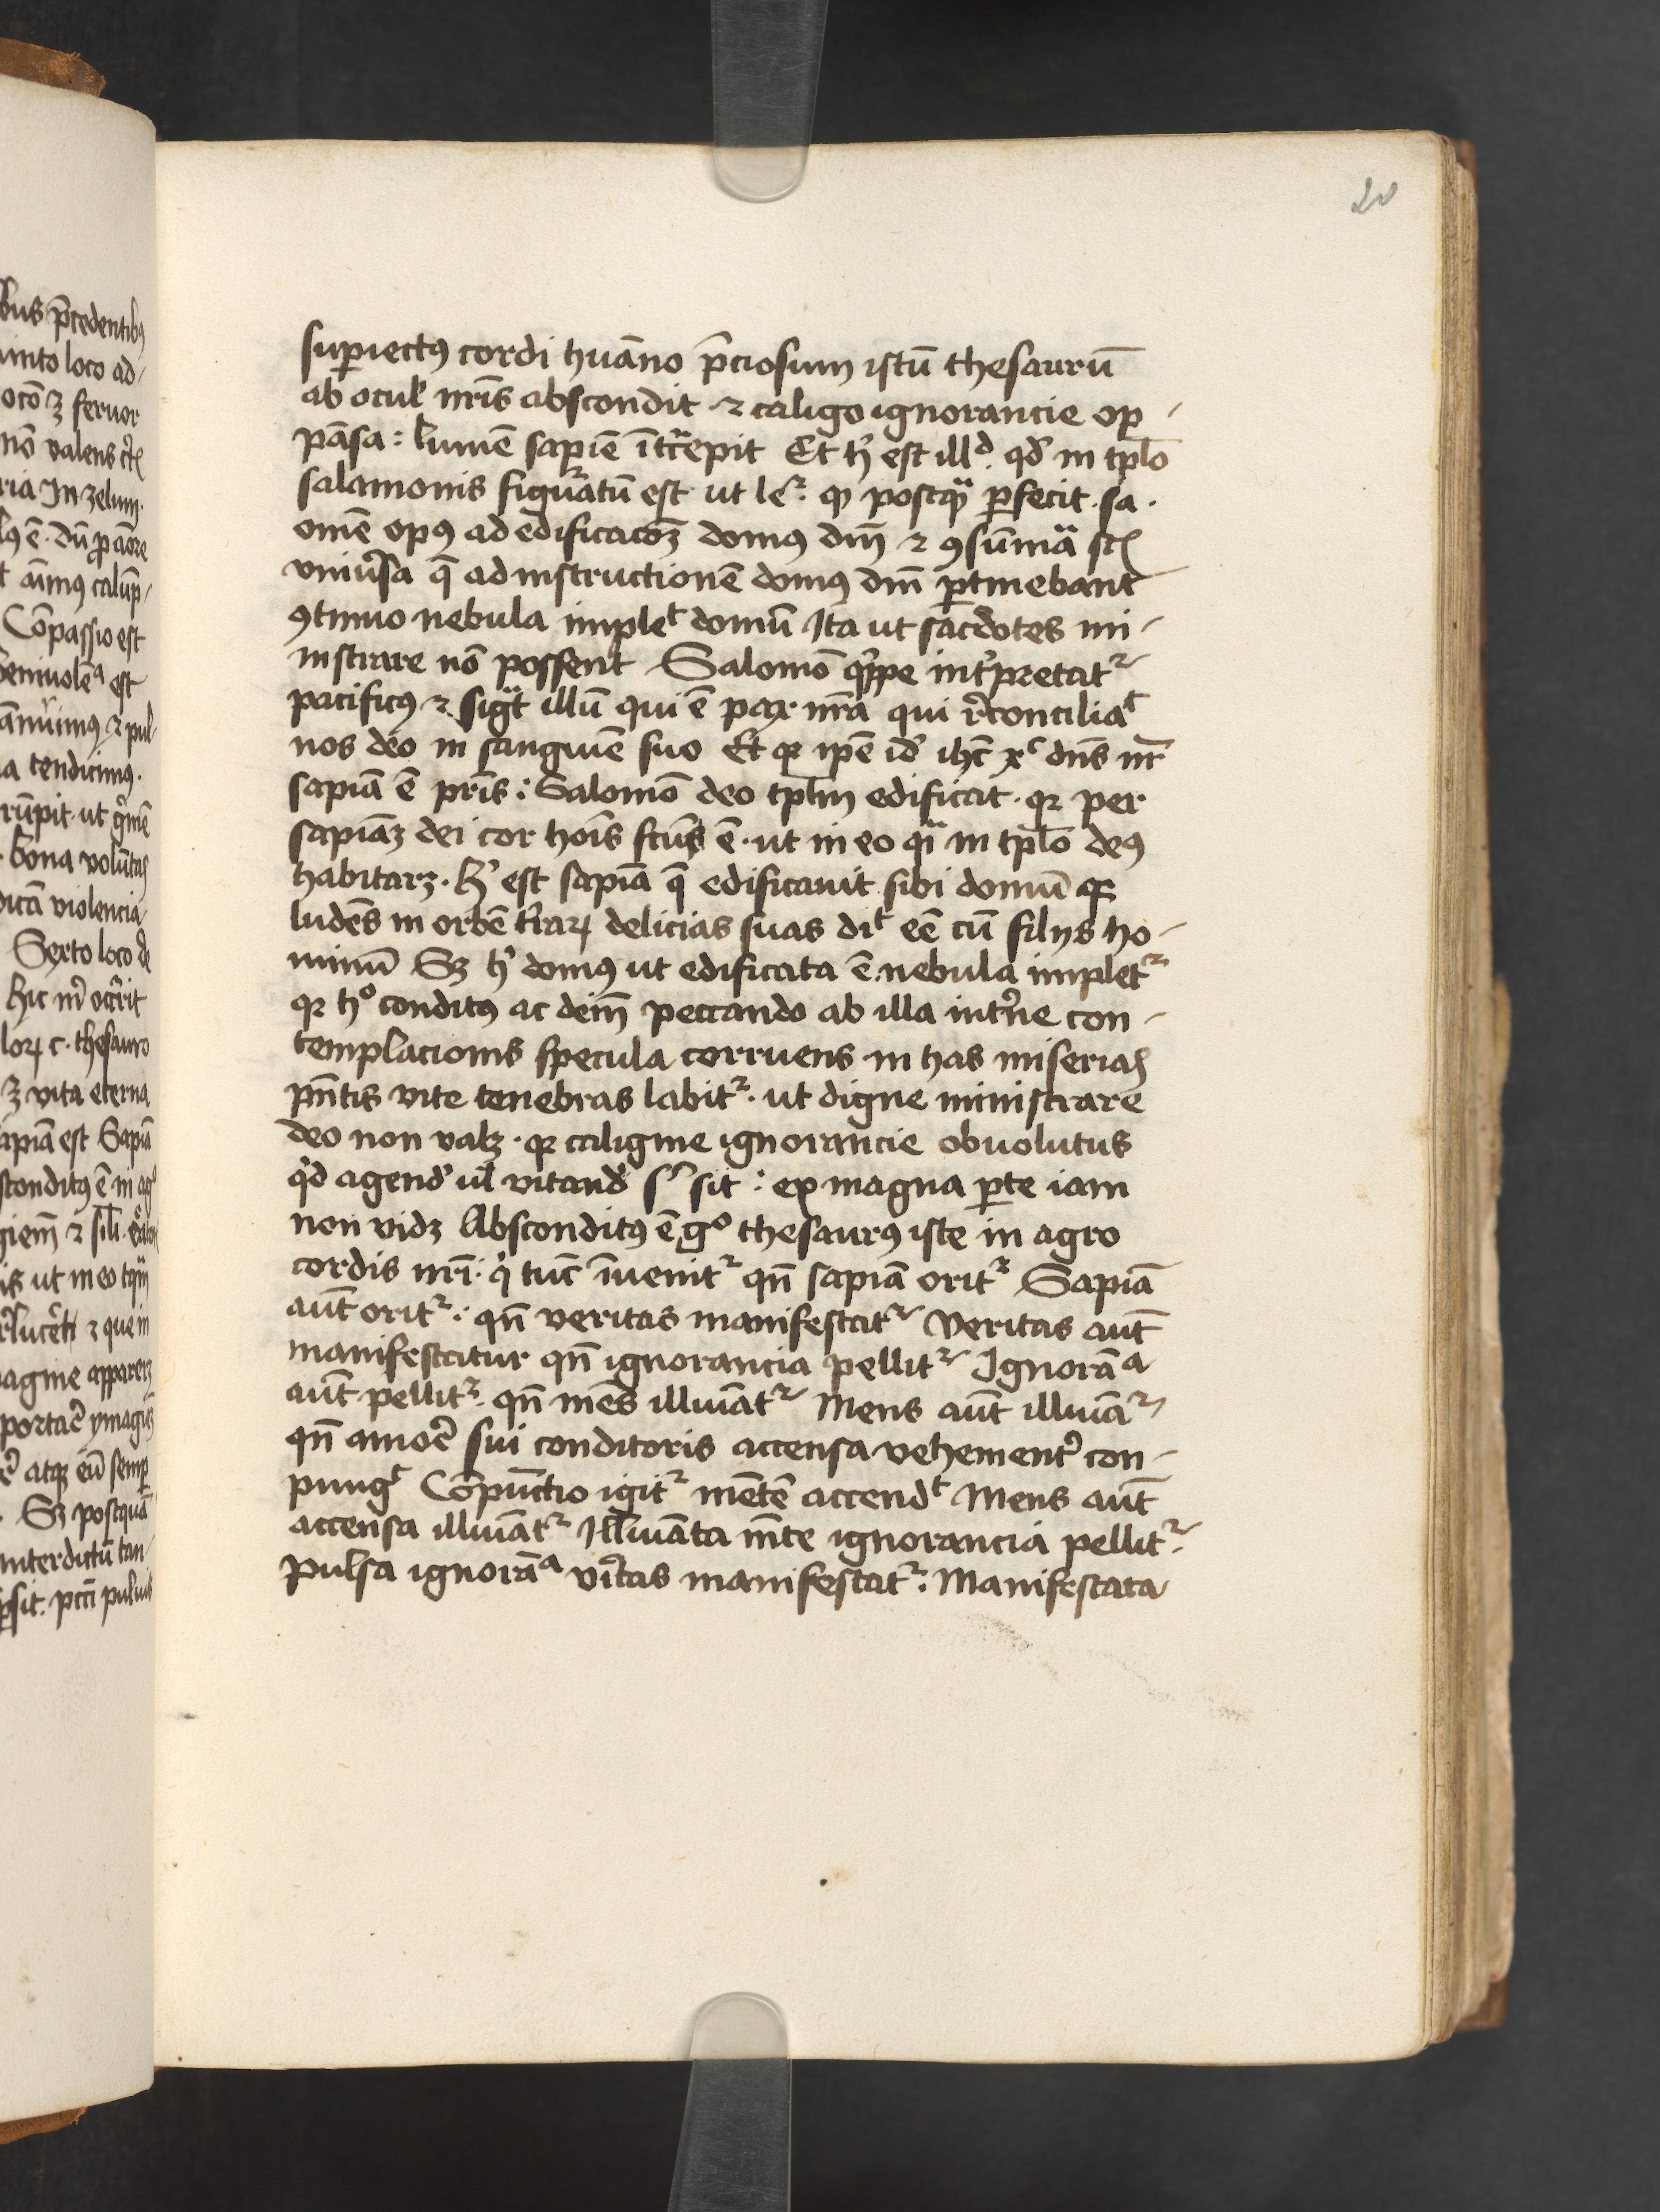 bus p̄cedentibꝯ
into loco ad/
ocō ꝫ feruor
nō valens
ria In zelum.
ē. dū p aōre
animꝯ calūp/
Cōpassio est
beniuolēᵃ est
ꝛ pul/
a tendicimꝯ.
rūpit. ut gͥmē
bona volūtas
dicā violencia
Sexto loco de
hic
loꝝ c. thesauro
ꝫ vita eterna
apiā est Sapiā
sconditꝯ ē in agᵒ
giem̄ ꝛ
is ut in eo tqͣm
ꝛ que in
agine apparerꝫ
portare ymaginē
atqꝫ eū semp
Sꝫ postquā
interdictū tan/
psit. pctī puluis
20
supiectꝯ cordi huāno p̄ciosum istū thesaurū
ab ocul nr̄is abscondit ꝛ caligo ignorancie op /
pāsa : lumē sapiē ītͨepit Et hͨ est illᵈ. qd' in tplō
salamonis figuratū est ut leͬ. ꝙ postqͣ pfecit . sa .
om̄e opꝯ ad edificacōꝫ domꝯ dn̄i ꝛ ꝯsūmāͣ scꝫ
vniu'sa q̄ ad instructionē domꝯ dn̄i ptinebant
ꝯtinuo nebula impleᵗ domū Ita ut sac'dotes mi /
nistrare nō possent Salomō qͥppe int'pretatͬ
pacificꝯ ꝛ sigͣt illū qui ē pax nr̄a qui r'conciliaᵗ
nos deo in sanguīe suo Et qꝛ ip̄e id' ih̄c xͨ dn̄s nr̄
sapiā ē pr̄is : Salomō deo tplm edificat . qꝛ per
sapiāꝫ dei cor hoīs fcūs ē . ut in eo qͣi in tplō deꝯ
habitarꝫ . hͨ est sapiā q̄ edificauit sibi domū qꝛ
ludēs in orbē t'raꝝ delicias suas diᵗ eē cū filijs ho /
minū Sꝫ hͨ domꝯ ut edificata ē . nebula impletͬ
qꝛ hᵒ conditꝯ ac dein̄ peccando ab illa int'ne con /
templacionis specula corruens in has miserias
pn̄tis vite tenebras labitͬ . ut digne ministrare
deo non valꝫ . qꝛ caligine ignorancie obuolutus
qͥd agend' ul' vitand' sͥ sit : ex magna pte iam
non vidꝫ Absconditꝯ ē gᵒ thesaurꝯ iste in agro
cordis nr̄i . qͥ tūc īuenitͬ qn̄ sapiā oritͬ Sapiā
aūt oritͬ : qn̄ veritas manifestatͬ Veritas aūt
manifestatur qn̄ ignorancia pellitͬ Ignorāᵃ
aūt pellitͬ . qn̄ mēs illuīatͬ Mens aūt illuīaͬ
qn̄ amor̄ sui conditoris accensa vehement' con /
pungᵗ Cōpūctio igitͬ mētē accendᵗ Mens aūt
accensa illuīatͬ Illuīata mn̄te ignorancia pellitͬ .
Pulsa ignorāᵃ v'itas manifestatͬ : Manifestata